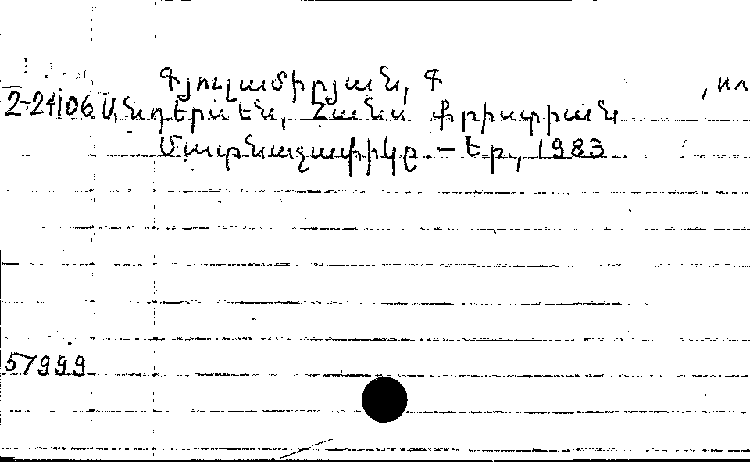 Գյուլամիրյան, Գ , նկ
2-24106 Անդերսեն, Հանս Քրիստիան
Մատնաչափիկը. – Եր., 1983
57999